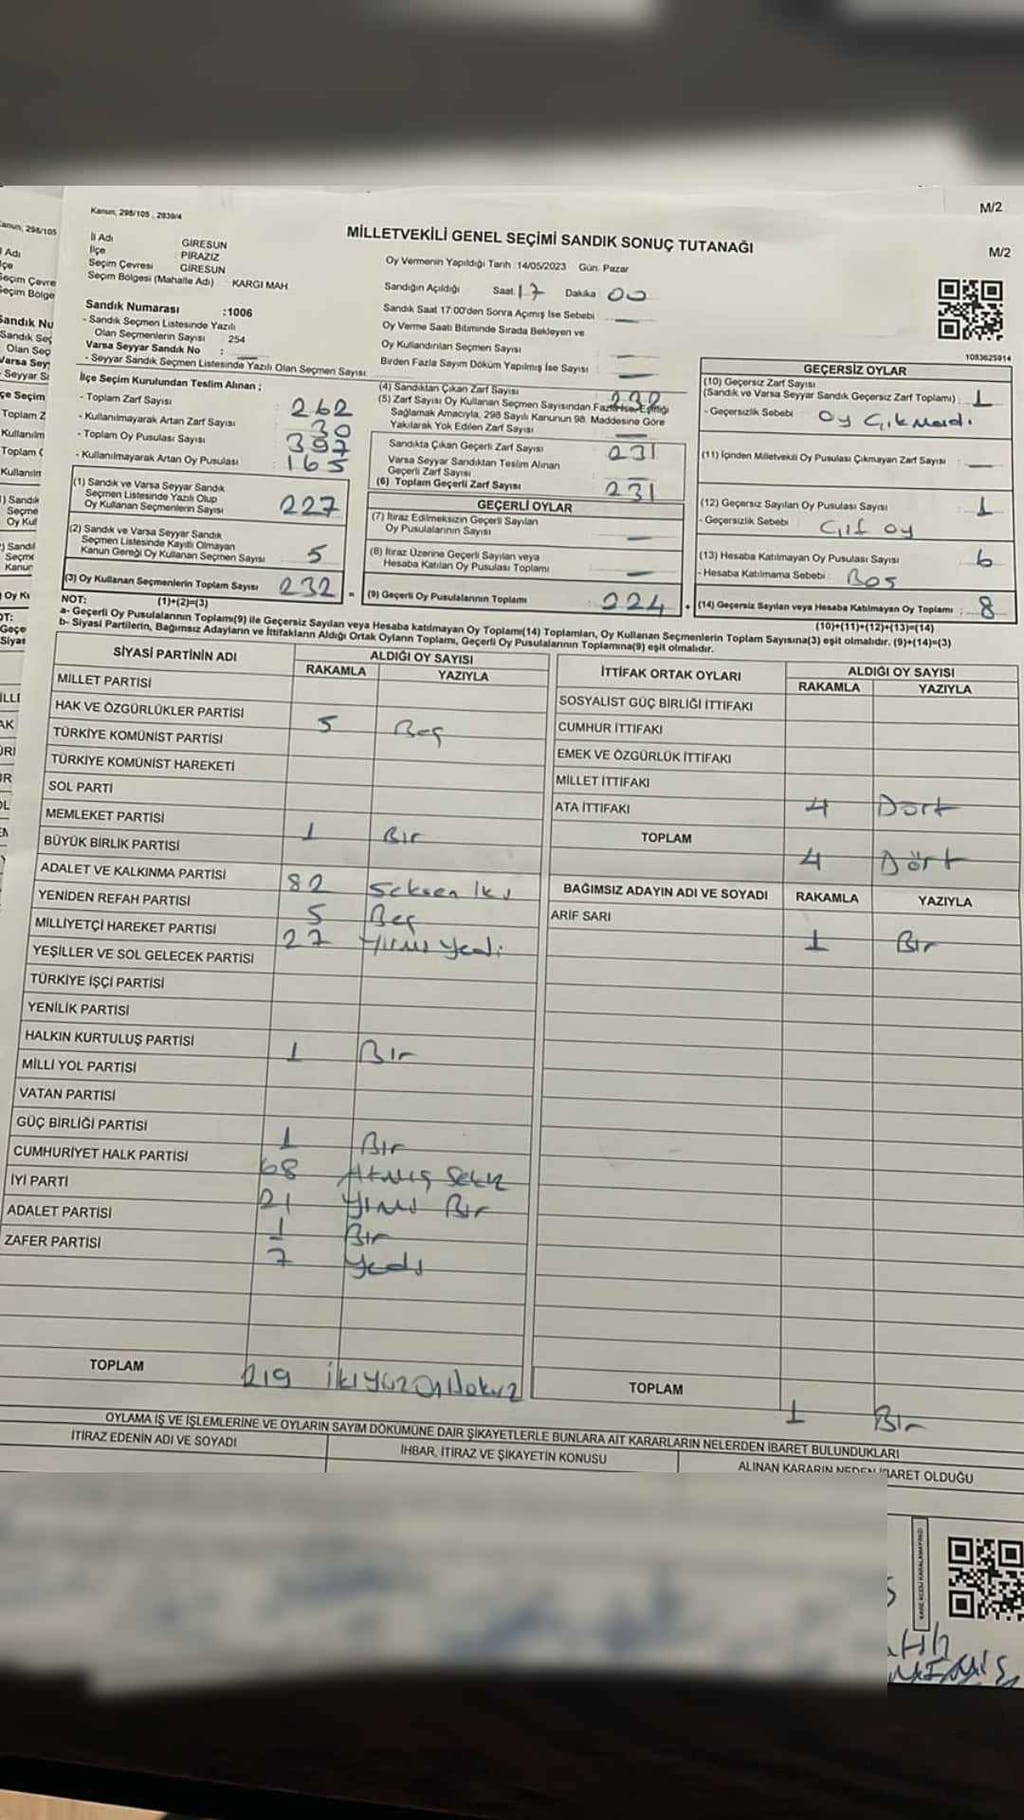 Kanun, 298/105 , 2839/4
M/2
MİLLETVEKİLİ GENEL SEÇİMİ SANDIK SONUÇ TUTANAĞI
M/2
İl Adı GİRESUN
İlçe PİRAZİZ
Seçim Çevresi GİRESUN
Seçim Bölgesi (Mahalle Adı) KARGI MAH
Oy Vermenin Yapıldığı Tarih :14/05/2023 Gün: Pazar
Sandığın Açıldığı Saat 17 Dakika 00
Sandık Saat 17:00'den Sonra Açımış İse Sebebi
Oy Verme Saati Bitiminde Sırada Bekleyen ve
Oy Kullandırılan Seçmen Sayısı
Birden Fazla Sayım Döküm Yapılmış İse Sayısı
Sandık Numarası :1006
- Sandık Seçmen Listesinde Yazılı
Olan Seçmenlerin Sayısı 254
Varsa Seyyar Sandık No :
- Seyyar Sandık Seçmen Listesinde Yazılı Olan Seçmen Sayısı:
İlçe Seçim Kurulundan Teslim Alınan ;
- Toplam Zarf Sayısı : 262
- Kullanılmayarak Artan Zarf Sayısı : 30
- Toplam Oy Pusulası Sayısı : 397
- Kullanılmayarak Artan Oy Pusulası : 165
(1) Sandık ve Varsa Seyyar Sandık
Seçmen Listesinde Yazılı Olup
Oy Kullanan Seçmenlerin Sayısı : 227
(2) Sandık ve Varsa Seyyar Sandık
Seçmen Listesinde Kayıtlı Olmayan
Kanun Gereği Oy Kullanan Seçmen Sayısı : 5
(3) Oy Kullanan Seçmenlerin Toplam Sayısı : 232 =
(1)+(2)=(3)
(4) Sandıktan Çıkan Zarf Sayısı : 232
(5) Zarf Sayısı Oy Kullanan Seçmen Sayısından Fazla İse, Eşitliği
Sağlamak Amacıyla, 298 Sayılı Kanunun 98. Maddesine Göre
Yakılarak Yok Edilen Zarf Sayısı :
Sandıkta Çıkan Geçerli Zarf Sayısı : 231
Varsa Seyyar Sandıktan Teslim Alınan
Geçerli Zarf Sayısı :
(6) Toplam Geçerli Zarf Sayısı : 231
GEÇERLİ OYLAR
(7) İtiraz Edilmeksizin Geçerli Sayılan
Oy Pusulalarının Sayısı :
(8) İtiraz Üzerine Geçerli Sayılan veya
Hesaba Katılan Oy Pusulası Toplamı :
(9) Geçerli Oy Pusulalarının Toplamı : 224 +
1083625914
GEÇERSİZ OYLAR
(10) Geçersiz Zarf Sayısı
(Sandık ve Varsa Seyyar Sandık Geçersiz Zarf Toplamı) : 1
- Geçersizlik Sebebi : Oy Çıkmadı.
(11) İçinden Milletvekili Oy Pusulası Çıkmayan Zarf Sayısı :
(12) Geçersiz Sayılan Oy Pusulası Sayısı : 1
- Geçersizlik Sebebi : Çift oy
(13) Hesaba Katılmayan Oy Pusulası Sayısı : 6
- Hesaba Katılmama Sebebi : Boş
(14) Geçersiz Sayılan veya Hesaba Katılmayan Oy Toplamı : 8
(10)+(11)+(12)+(13)=(14)
NOT:
a- Geçerli Oy Pusulalarının Toplamı(9) ile Geçersiz Sayılan veya Hesaba katılmayan Oy Toplamı(14) Toplamları, Oy Kullanan Seçmenlerin Toplam Sayısına(3) eşit olmalıdır. (9)+(14)=(3)
b- Siyasi Partilerin, Bağımsız Adayların ve İttifakların Aldığı Ortak Oyların Toplamı, Geçerli Oy Pusulalarının Toplamına(9) eşit olmalıdır.
SİYASİ PARTİNİN ADI ALDIĞI OY SAYISI
RAKAMLA YAZIYLA
MİLLET PARTİSİ
HAK VE ÖZGÜRLÜKLER PARTİSİ 5 Beş
TÜRKİYE KOMÜNİST PARTİSİ
TÜRKİYE KOMÜNİST HAREKETİ
SOL PARTİ
MEMLEKET PARTİSİ 1 Bir
BÜYÜK BİRLİK PARTİSİ
ADALET VE KALKINMA PARTİSİ 82 Seksen İki
YENİDEN REFAH PARTİSİ 5 Beş
MİLLİYETÇİ HAREKET PARTİSİ 27 Yirmi Yedi
YEŞİLLER VE SOL GELECEK PARTİSİ
TÜRKİYE İŞÇİ PARTİSİ
YENİLİK PARTİSİ
HALKIN KURTULUŞ PARTİSİ 1 Bir
MİLLİ YOL PARTİSİ
VATAN PARTİSİ
GÜÇ BİRLİĞİ PARTİSİ 1 Bir
CUMHURİYET HALK PARTİSİ 68 Atmış Sekiz
İYİ PARTİ 21 Yirmi Bir
ADALET PARTİSİ 1 Bir
ZAFER PARTİSİ 7 Yedi
TOPLAM 219 İkiyüzondokuz
İTTİFAK ORTAK OYLARI ALDIĞI OY SAYISI
RAKAMLA YAZIYLA
SOSYALİST GÜÇ BİRLİĞİ İTTİFAKI
CUMHUR İTTİFAKI
EMEK VE ÖZGÜRLÜK İTTİFAKI
MİLLET İTTİFAKI
ATA İTTİFAKI 4 Dört
TOPLAM 4 Dört
BAĞIMSIZ ADAYIN ADI VE SOYADI RAKAMLA YAZIYLA
ARİF SARI 1 Bir
TOPLAM 1 Bir
OYLAMA İŞ VE İŞLEMLERİNE VE OYLARIN SAYIM DÖKÜMÜNE DAİR ŞİKAYETLERLE BUNLARA AİT KARARLARIN NELERDEN İBARET BULUNDUKLARI
İTİRAZ EDENİN ADI VE SOYADI İHBAR, İTİRAZ VE ŞİKAYETİN KONUSU ALINAN KARARIN NEDEN İBARET OLDUĞU